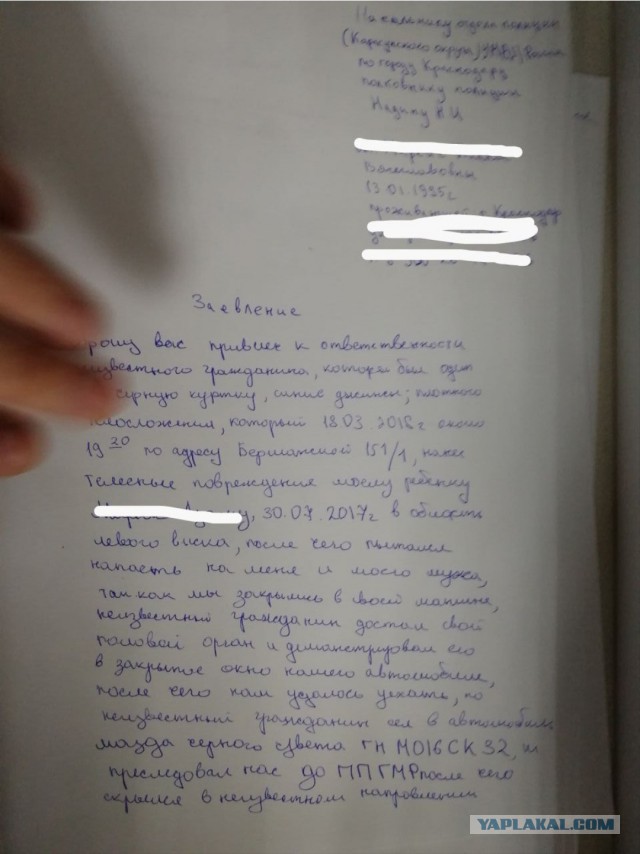 (Карасунского округа) УМВД России
по городу Краснодару
полковнику полиции
13.01.1995г
Заявление
рошу вас привлеч к ответственности
известного гражданина, который был одет
черную куртку, синие джинсы, плотного
елосложения, который 18.03.2018г около
19 20 по адресу Бершанской 151/1, нанес
телесные повреждения моему ребенку
, 30.07.2017г в область
левого виска, после чего пытался
напасть на меня и моего мужа,
так как мы закрылись в своей машине,
неизвестный гражданин достал свой
половой орган и демонстрировал его
в закрытое окно нашего автомобиля,
после чего нам удалось уехать, но
неизвестный гражданин сел в автомобиль
мазда черного цвета ГН М016СК 32, и
преследовал нас до ППГМР после чего
скрылся в неизвестном направлении
YAPLAKAL.COM